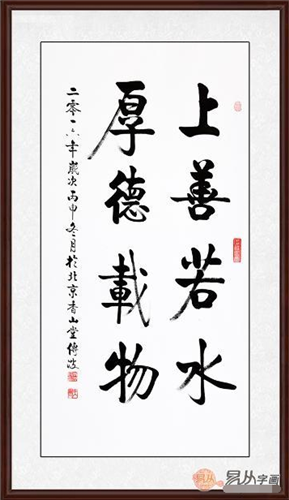 上善若水
厚德載物
二零一六年歲次丙申冬月於北京香山堂傳波
易从字画